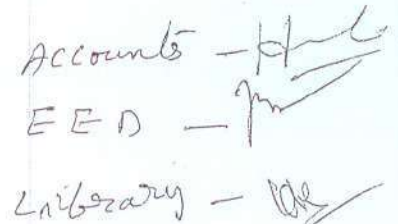 Accounts -
EED -
Library -